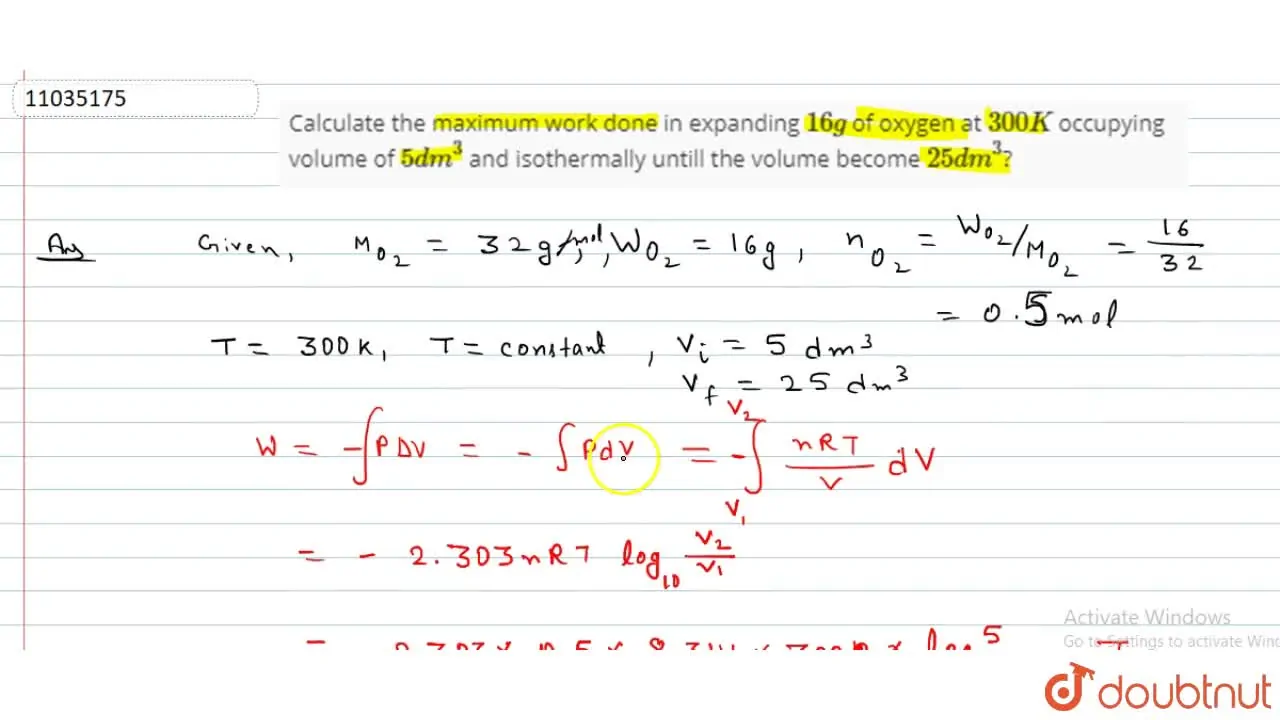 11035175
Calculate the maximum work done in expanding 16g of oxygen at 300K occupying
volume of 5dm³ and isothermally untill the volume become 25dm³?
Ans Given, M_O₂ = 32g/mol, W_O₂ = 16g, n_O₂ = W_O₂/M_O₂ = 16/32
= 0.5 mol
T = 300K, T = constant, V_i = 5 dm³
V_f = 25 dm³
W = -∫PΔV = -∫PdV = -∫_V₁^V₂ nRT/V dV
= - 2.303nRT log₁₀ V₂/V₁
Activate Windows
Go to Settings to activate Win
doubtnut